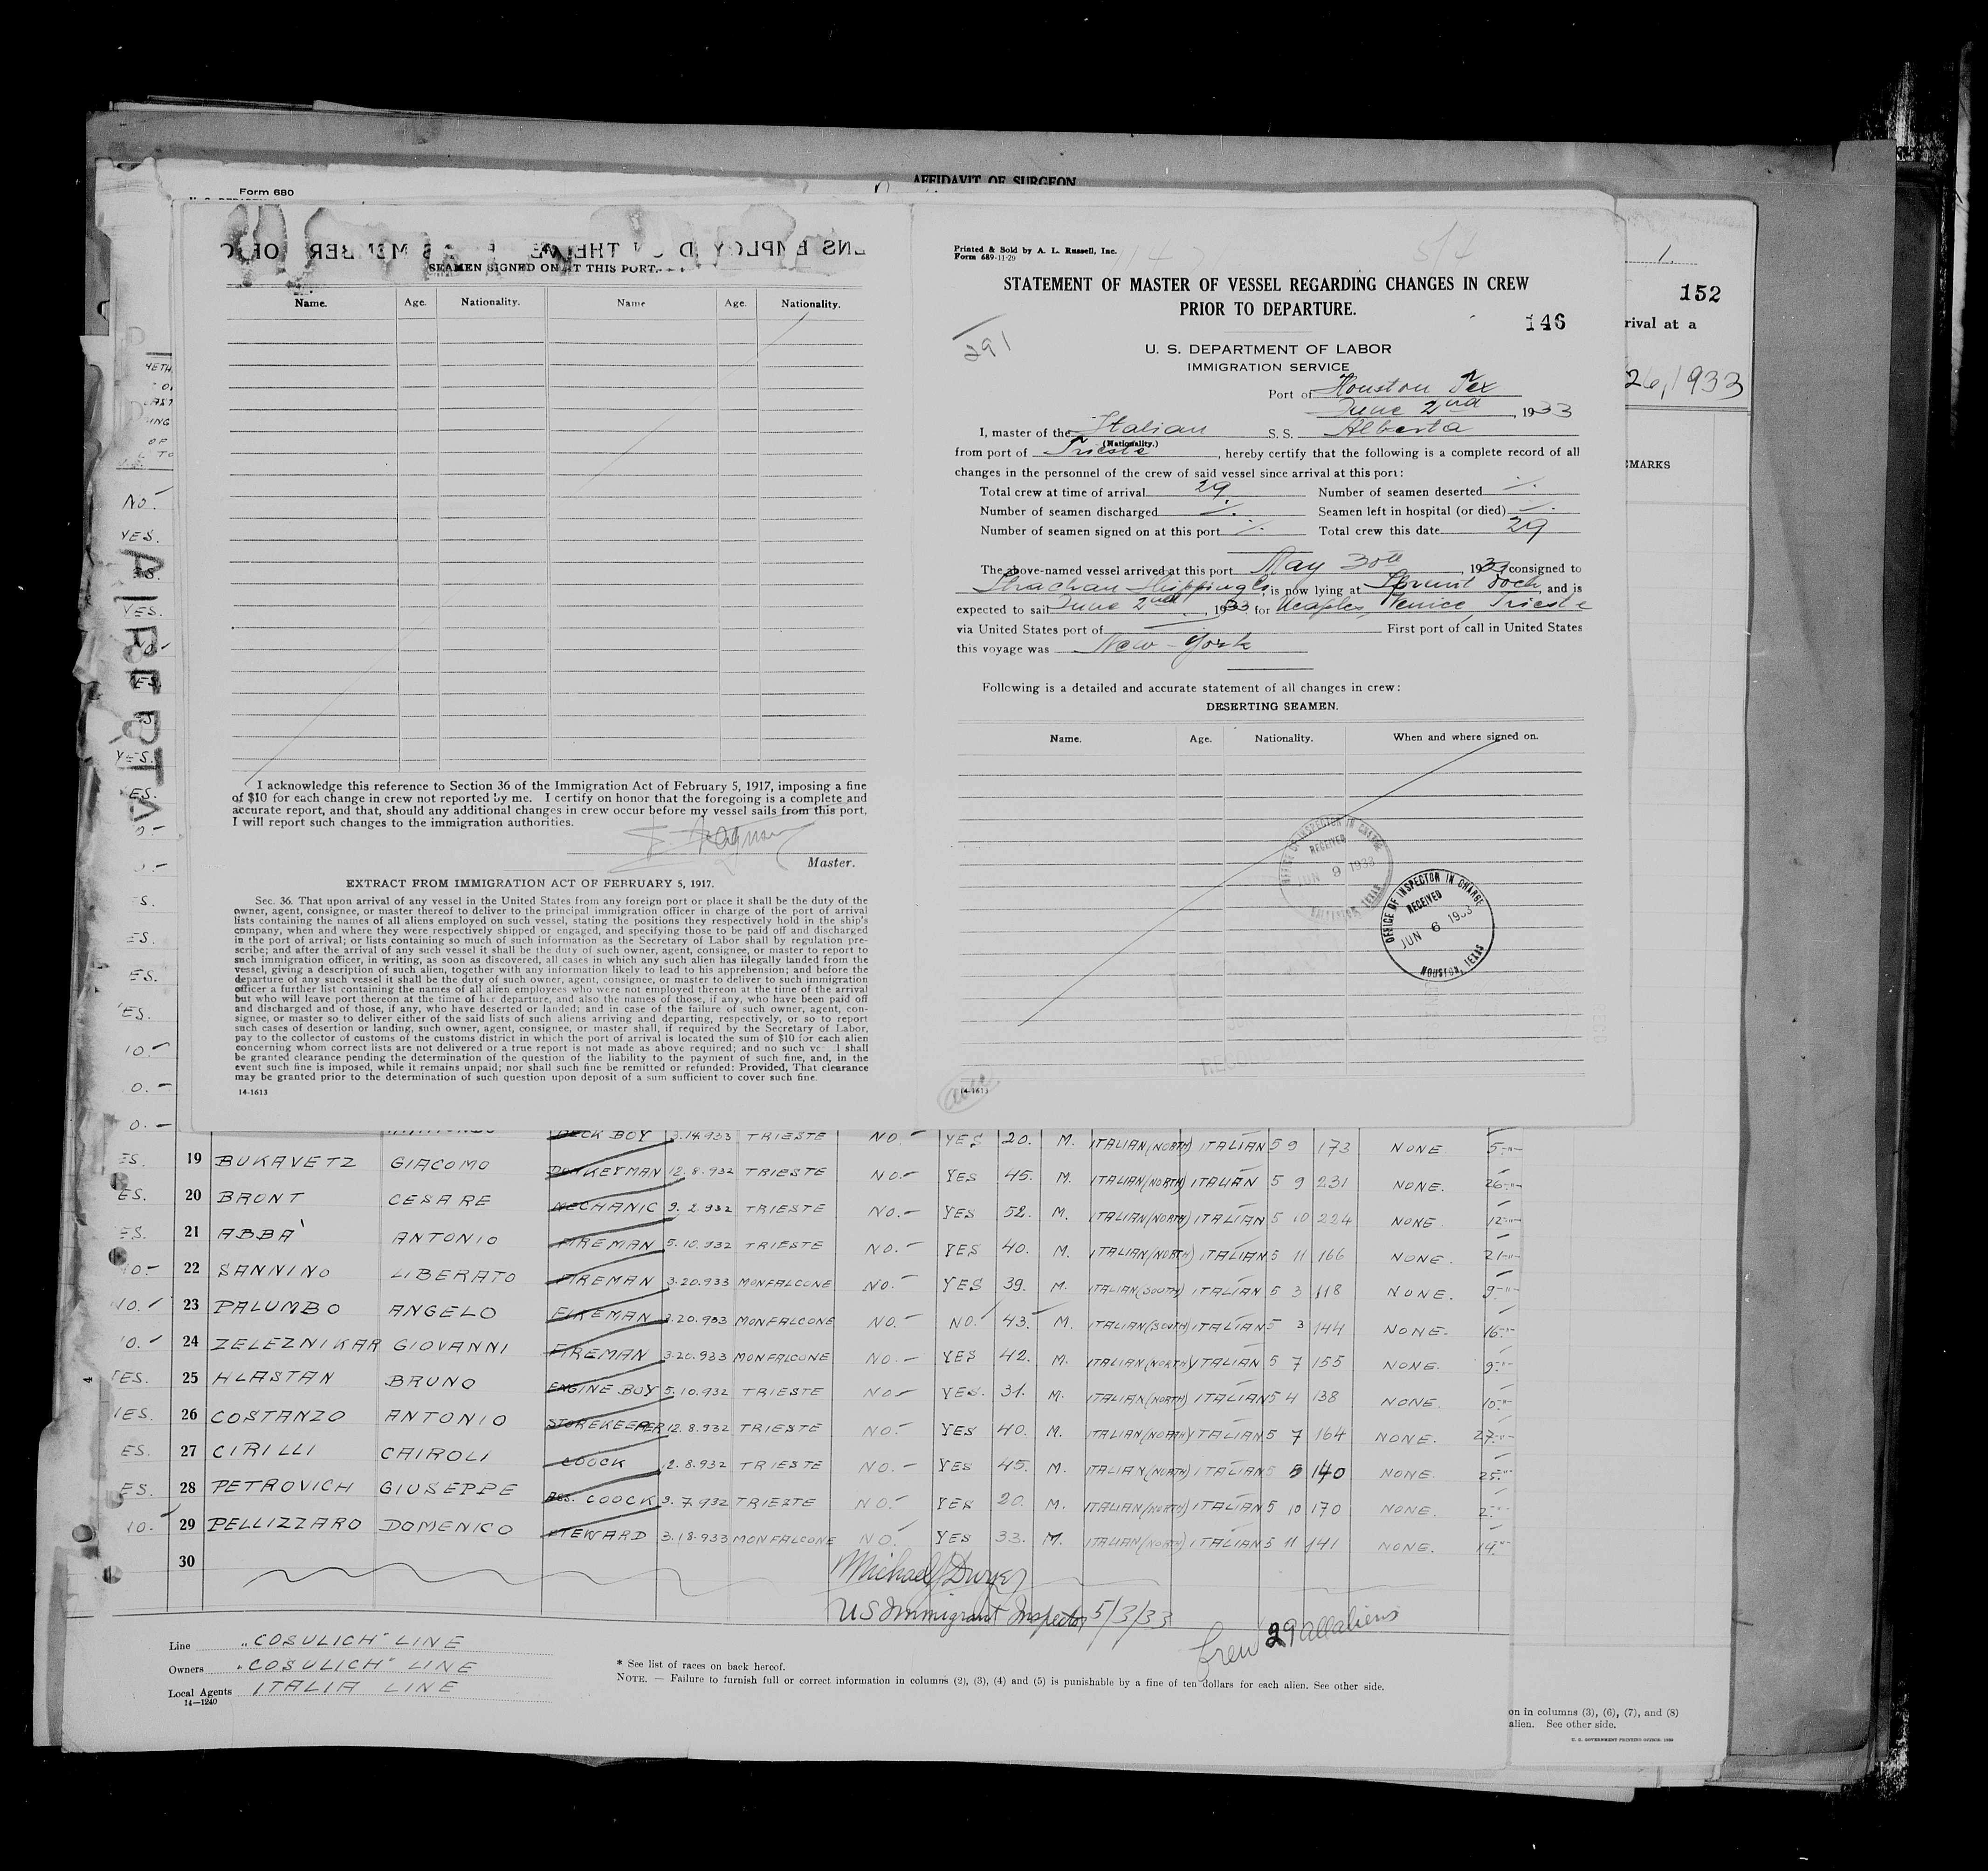 AFFIDAVIT OF SURGEON
Form 680
SEAMEN SIGNED ON AT THIS PORT.
Name. Age. Nationality. Name Age. Nationality.
I acknowledge this reference to Section 36 of the Immigration Act of February 5, 1917, imposing a fine
of $10 for each change in crew not reported by me. I certify on honor that the foregoing is a complete and
accurate report, and that, should any additional changes in crew occur before my vessel sails from this port,
I will report such changes to the immigration authorities.
Master.
EXTRACT FROM IMMIGRATION ACT OF FEBRUARY 5, 1917.
Sec. 36. That upon arrival of any vessel in the United States from any foreign port or place it shall be the duty of the
owner, agent, consignee, or master thereof to deliver to the principal immigration officer in charge of the port of arrival
lists containing the names of all aliens employed on such vessel, stating the positions they respectively hold in the ship's
company, when and where they were respectively shipped or engaged, and specifying those to be paid off and discharged
in the port of arrival; or lists containing so much of such information as the Secretary of Labor shall by regulation pre-
scribe; and after the arrival of any such vessel it shall be the duty of such owner, agent, consignee, or master to report to
such immigration officer, in writing, as soon as discovered, all cases in which any such alien has illegally landed from the
vessel, giving a description of such alien, together with any information likely to lead to his apprehension; and before the
departure of any such vessel it shall be the duty of such owner, agent, consignee, or master to deliver to such immigration
officer a further list containing the names of all alien employees who were not employed thereon at the time of the arrival
but who will leave port thereon at the time of her departure, and also the names of those, if any, who have been paid off
and discharged and of those, if any, who have deserted or landed; and in case of the failure of such owner, agent, con-
signee, or master so to deliver either of the said lists of such aliens arriving and departing, respectively, or so to report
such cases of desertion or landing, such owner, agent, consignee, or master shall, if required by the Secretary of Labor,
pay to the collector of customs of the customs district in which the port of arrival is located the sum of $10 for each alien
concerning whom correct lists are not delivered or a true report is not made as above required; and no such ve l shall
be granted clearance pending the determination of the question of the liability to the payment of such fine, and, in the
event such fine is imposed, while it remains unpaid; nor shall such fine be remitted or refunded: Provided, That clearance
may be granted prior to the determination of such question upon deposit of a sum sufficient to cover such fine.
14-1613
Printed & Sold by A. L. Russell, Inc.
Form 689-11-29
STATEMENT OF MASTER OF VESSEL REGARDING CHANGES IN CREW
PRIOR TO DEPARTURE.
146
291
U. S. DEPARTMENT OF LABOR
IMMIGRATION SERVICE
Port of Houston Tex
June 2nd, 1933
I, master of the Italian S. S. Alberta
(Nationality.)
from port of Trieste, hereby certify that the following is a complete record of all
changes in the personnel of the crew of said vessel since arrival at this port:
Total crew at time of arrival 29 Number of seamen deserted ./.
Number of seamen discharged ./. Seamen left in hospital (or died) ./.
Number of seamen signed on at this port ./. Total crew this date 29
The above-named vessel arrived at this port May 30th, 1933, consigned to
Strachan Shipping Co, is now lying at Sprunt Dock, and is
expected to sail June 2nd, 1933, for Neaples, Venice, Trieste
via United States port of First port of call in United States
this voyage was New-York
Following is a detailed and accurate statement of all changes in crew:
DESERTING SEAMEN.
Name. Age. Nationality. When and where signed on.
OFFICE OF INSPECTOR IN CHARGE
RECEIVED
JUN 9 1933
OFFICE OF INSPECTOR IN CHARGE
RECEIVED
JUN 6 1933
HOUSTON, TEXAS
14-1613
1.
152
rival at a
26, 1933
EMARKS
ALBERTA
DECK BOY 3.14.933 TRIESTE NO.- YES 20. M. ITALIAN(NORTH) ITALIAN 5 9 173 NONE
19 BUKAVETZ GIACOMO DONKEYMAN 12.8.932 TRIESTE NO.- YES 45. M. ITALIAN(NORTH) ITALIAN 5 9 231 NONE.
20 BRONT CESARE MECHANIC 9.2.932 TRIESTE NO.- YES 52. M. ITALIAN(NORTH) ITALIAN 5 10 224 NONE
21 ABBÀ ANTONIO FIREMAN 5.10.932 TRIESTE NO.- YES 40. M. ITALIAN(NORTH) ITALIAN 5 11 166 NONE.
22 SANNINO LIBERATO FIREMAN 3.20.933 MONFALCONE NO.- YES 39. M. ITALIAN(SOUTH) ITALIAN 5 3 118 NONE.
23 PALUMBO ANGELO FIREMAN 3.20.933 MONFALCONE NO.- NO. 43. M. ITALIAN(SOUTH) ITALIAN 5 3 144 NONE.
24 ZELEZNIKAR GIOVANNI FIREMAN 3.20.933 MONFALCONE NO.- YES 42. M. ITALIAN(NORTH) ITALIAN 5 7 155 NONE.
25 HLASTAN BRUNO ENGINE BOY 5.10.932 TRIESTE NO- YES. 31. M. ITALIAN(NORTH) ITALIAN 5 4 138 NONE.
26 COSTANZO ANTONIO STOREKEEPER 12.8.932 TRIESTE NO.- YES 40. M. ITALIAN(NORTH) ITALIAN 5 7 164 NONE.
27 CIRILLI CAIROLI COOCK 12.8.932 TRIESTE NO.- YES 45. M. ITALIAN(NORTH) ITALIAN 5 5 140 NONE.
28 PETROVICH GIUSEPPE ASS. COOCK 9.7.932 TRIESTE NO.- YES 20. M. ITALIAN(NORTH) ITALIAN 5 10 170 NONE.
29 PELLIZZARO DOMENICO STEWARD 3.18.933 MONFALCONE NO.- YES 33. M. ITALIAN(NORTH) ITALIAN 5 11 141 NONE.
30
Michael J Dwyer
US Immigrant Inspector 5/3/33
Crew 29 all aliens
Line "COSULICH" LINE
Owners "COSULICH" LINE
Local Agents ITALIA LINE
14-1240
* See list of races on back hereof.
NOTE. — Failure to furnish full or correct information in columns (2), (3), (4) and (5) is punishable by a fine of ten dollars for each alien. See other side.
on in columns (3), (6), (7), and (8)
alien. See other side.
U. S. GOVERNMENT PRINTING OFFICE: 1929